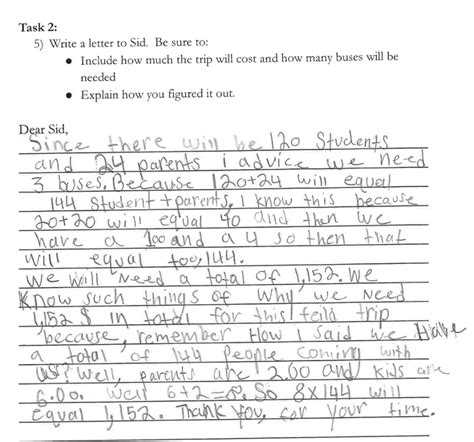 Task 2:
5) Write a letter to Sid. Be sure to:
● Include how much the trip will cost and how many buses will be
needed
● Explain how you figured it out.
Dear Sid,
Since there will be 120 Students
and 24 parents i advice we need
3 buses. Because 120+24 will equal
144 student + parents. I know this because
20+20 will equal 40 and then we
have a 100 and a 4 so then that
will equal too, 144.
We will need a total of 1,152. We
Know such things of why we need
1,152 $ in total for this feild trip
because, remember How I said we Have
a total of 144 people coming with
us? Well, parents are 2.00 and kids are
6.00. Well 6+2=8. So 8x144 will
equal 1,152. Thank You, for Your time.